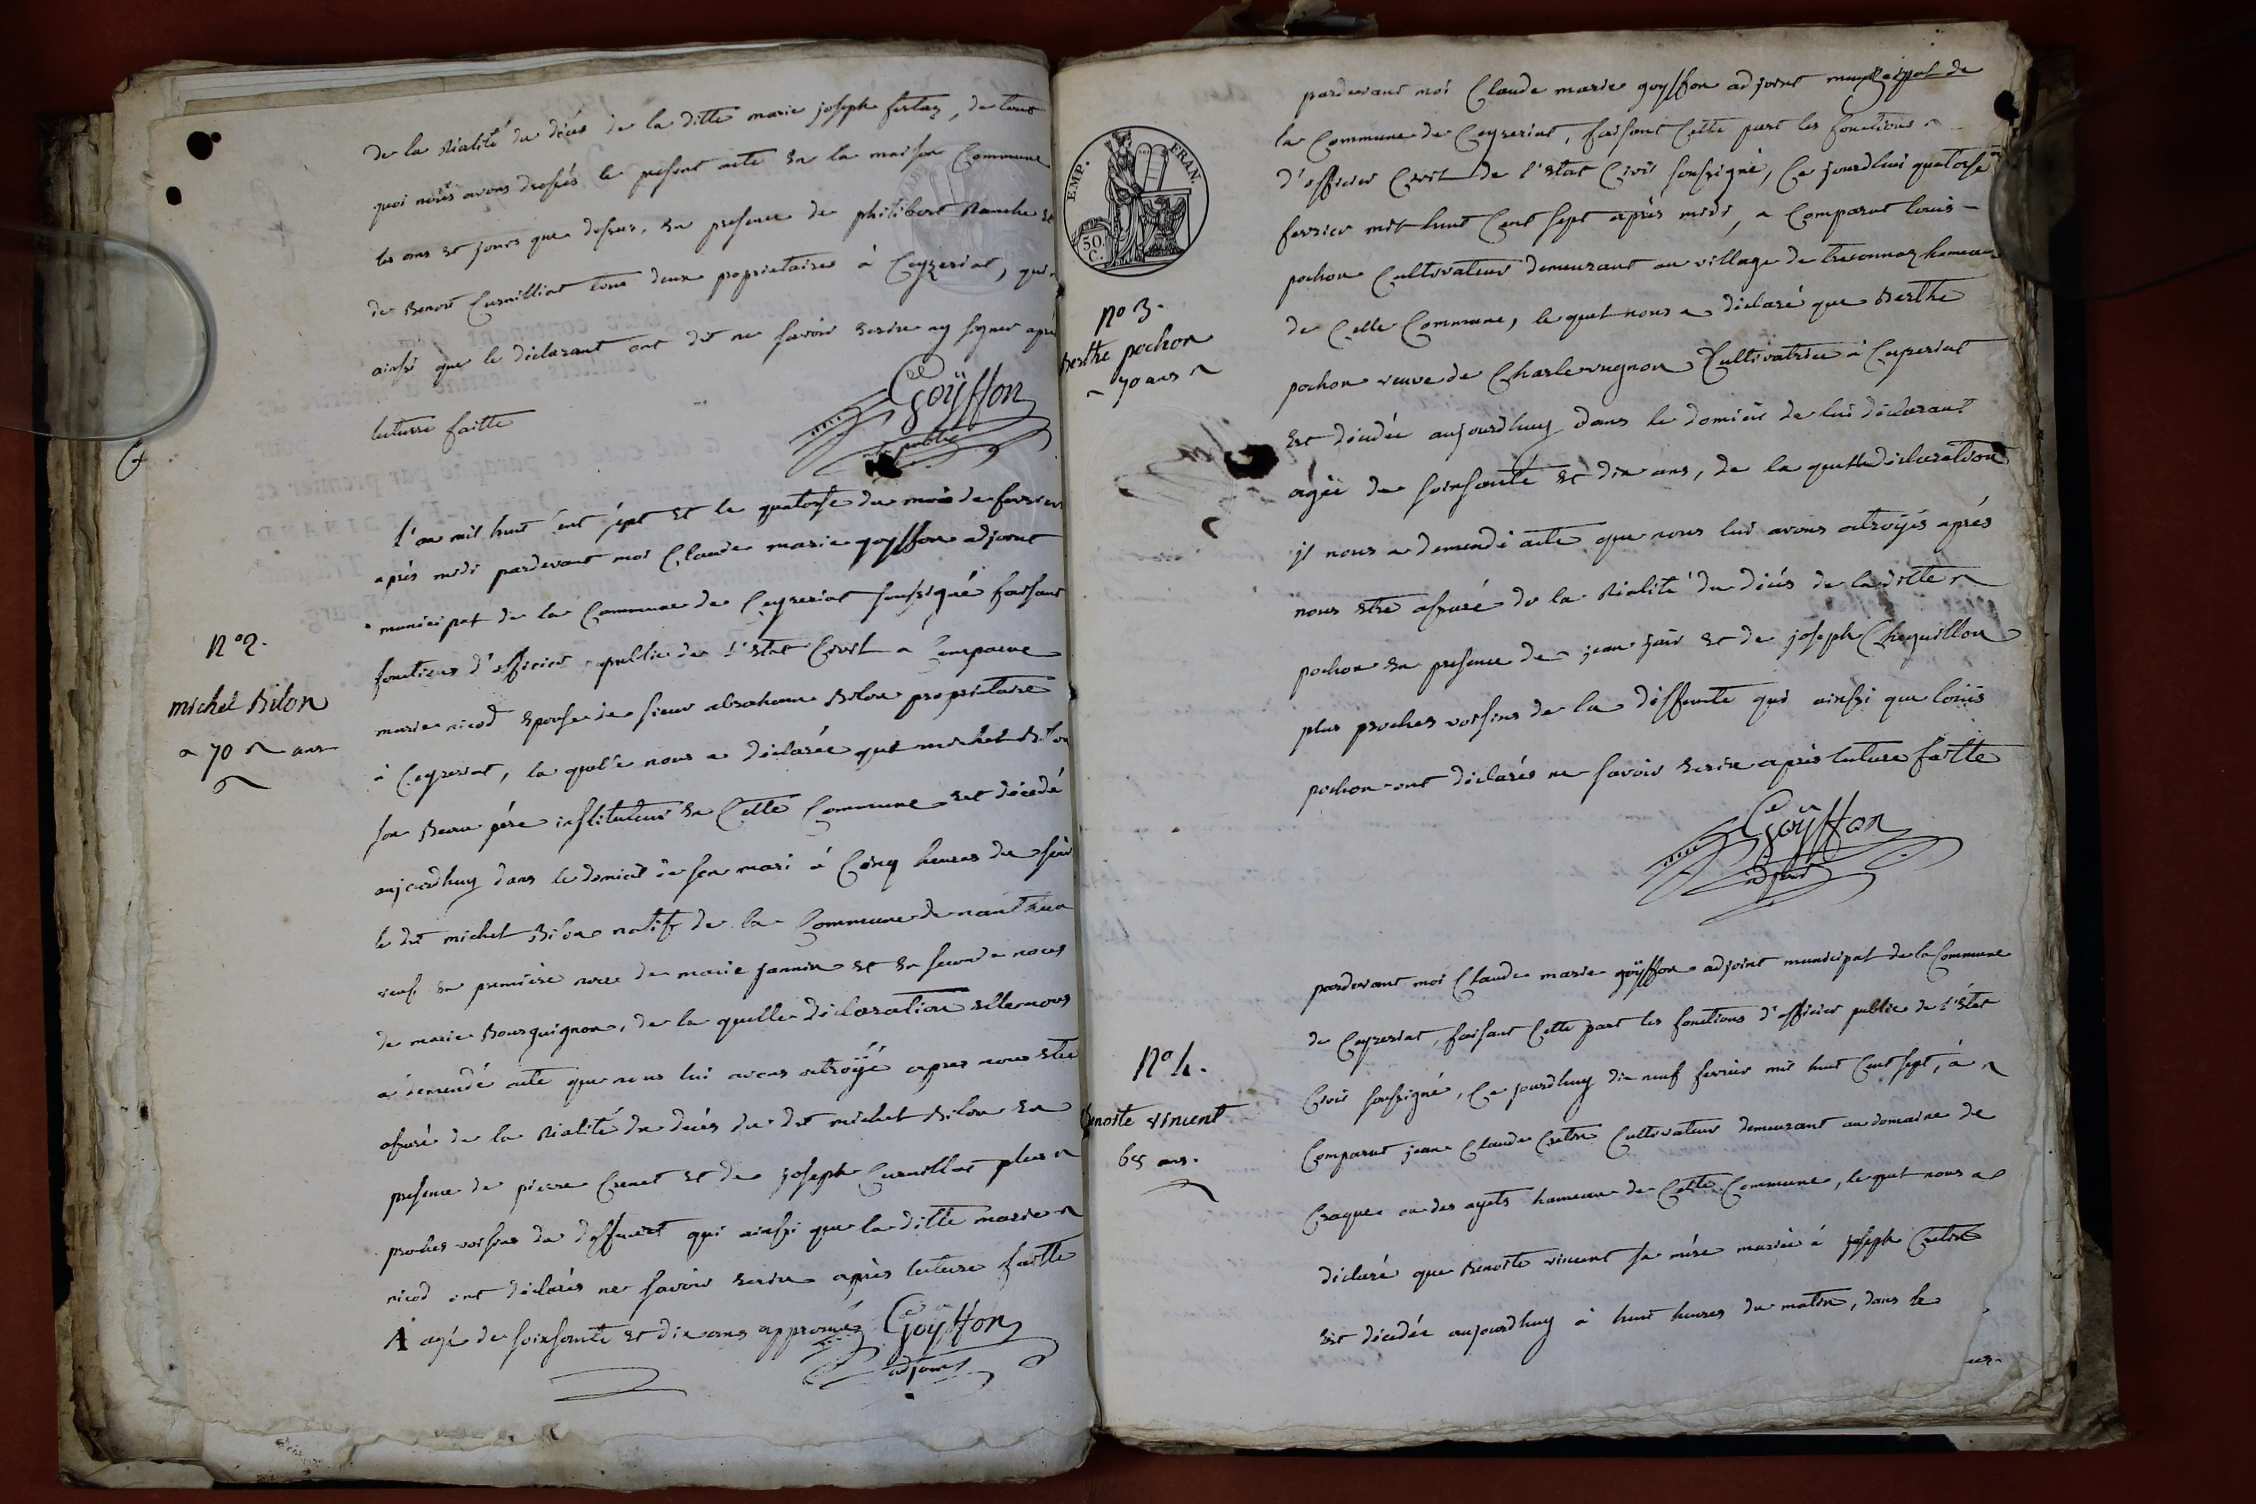 de la Réalité du décès de la ditte marie joseph fertaz, de tout
quoi nous avons dressés le présent acte En la maison Commune
les ans et jours que dessus, En presence de philibert Ranche et
de Benoit Curnilliat tous deux proprietaires à Ceyzeriat, qui
ainssi que le déclarant ont dit ne savoir Ecrire ny signer après
lecturre faitte
Goÿffon
l'an mil huit cent sept et le quatorse du mois de fevrier
après midi pardevant moi Claude marie goyffon adjoint
municipal de la Commune de Ceyzeriat soussigné faisant
fonctions d'officier public de l'Etat Civil a Comparue
marie nicod Epouse de sieur abraham Bilon proprietaire
à Ceyzeriat, la quelle nous a déclarée que michel Bilon
son Beau père instituteur En Cette Commune est décédé
aujourdhuy dans le domicil de son mari à Cinq heures du soir
le dit michel Bilon natif de la Commune de nantua
veuf En première noce de marie jannin et En seconde noces
de marie Bourguignon, de la quelle déclaration Elle nous
a demendé acte que nous lui avons octroÿé apres nous etre
assuré de la Réalité du decés du dit michel Bilon En
presence de pierre Crenet et de joseph Curnillat plus
proches voisins du deffunct qui ainssi que la ditte marie
nicod ont déclarés ne savoir Ecrire après lecture faitte
A agé de soixsante et dix ans approuvéz Goÿffon
adjoint
N° 2.
michel Bilon
a 70 ans
EMP. FRAN.
50. C.
N° 3.
Berthe pochon
70 ans
pardevant moi Claude marie goyffon adjoint municipal de
la Commune de Ceyzeriat, faisant Cette part les fonctions
d'officier Civil de l'Etat Civil soussigné, Ce jourdhui quatorse
fevrier mil huit Cent sept après midi, a Comparut louis
pochon Cultivateur demeurant au village de tresonnaz hameau
de Cette Commune, le quel nous a déclaré que Berthe
pochon veuve de Charle vugnon Cultivatrice à Ceyzeriat
Est décédée aujourdhuy dans le domicil de lui déclarant
agée de soixsante et dix ans, de la quelle déclaration
il nous a demendé acte que nous lui avons octroÿés après
nous etre assuré de la Réalité du décés de la ditte
pochon En presence de jean jair et de joseph Chequillon
plus proches voisins de la deffuncte qui ainssi que louis
pochon ont déclarés ne savoir Ecrire après lecture faitte
Goÿffon
adjoint
N° 4.
Benoite vincent
65 ans.
pardevant moi Claude marie goÿffon adjoint municipal de la Commune
de Ceyzeriat, faisant Cette part les fonctions d'officier public de l'Etat
Civil soussigné, Ce jourdhuy dix neuf fevrier mil huit Cent sept, à
Comparut jean Claude Cretin Cultivateur demeurant au domaine de
Craque ou des ayets hameau de Cette Commune, le quel nous a
déclaré que Benoite vincent sa mère mariée à joseph Cretin
Est décédée aujourdhuy à huit heures du matin, dans le